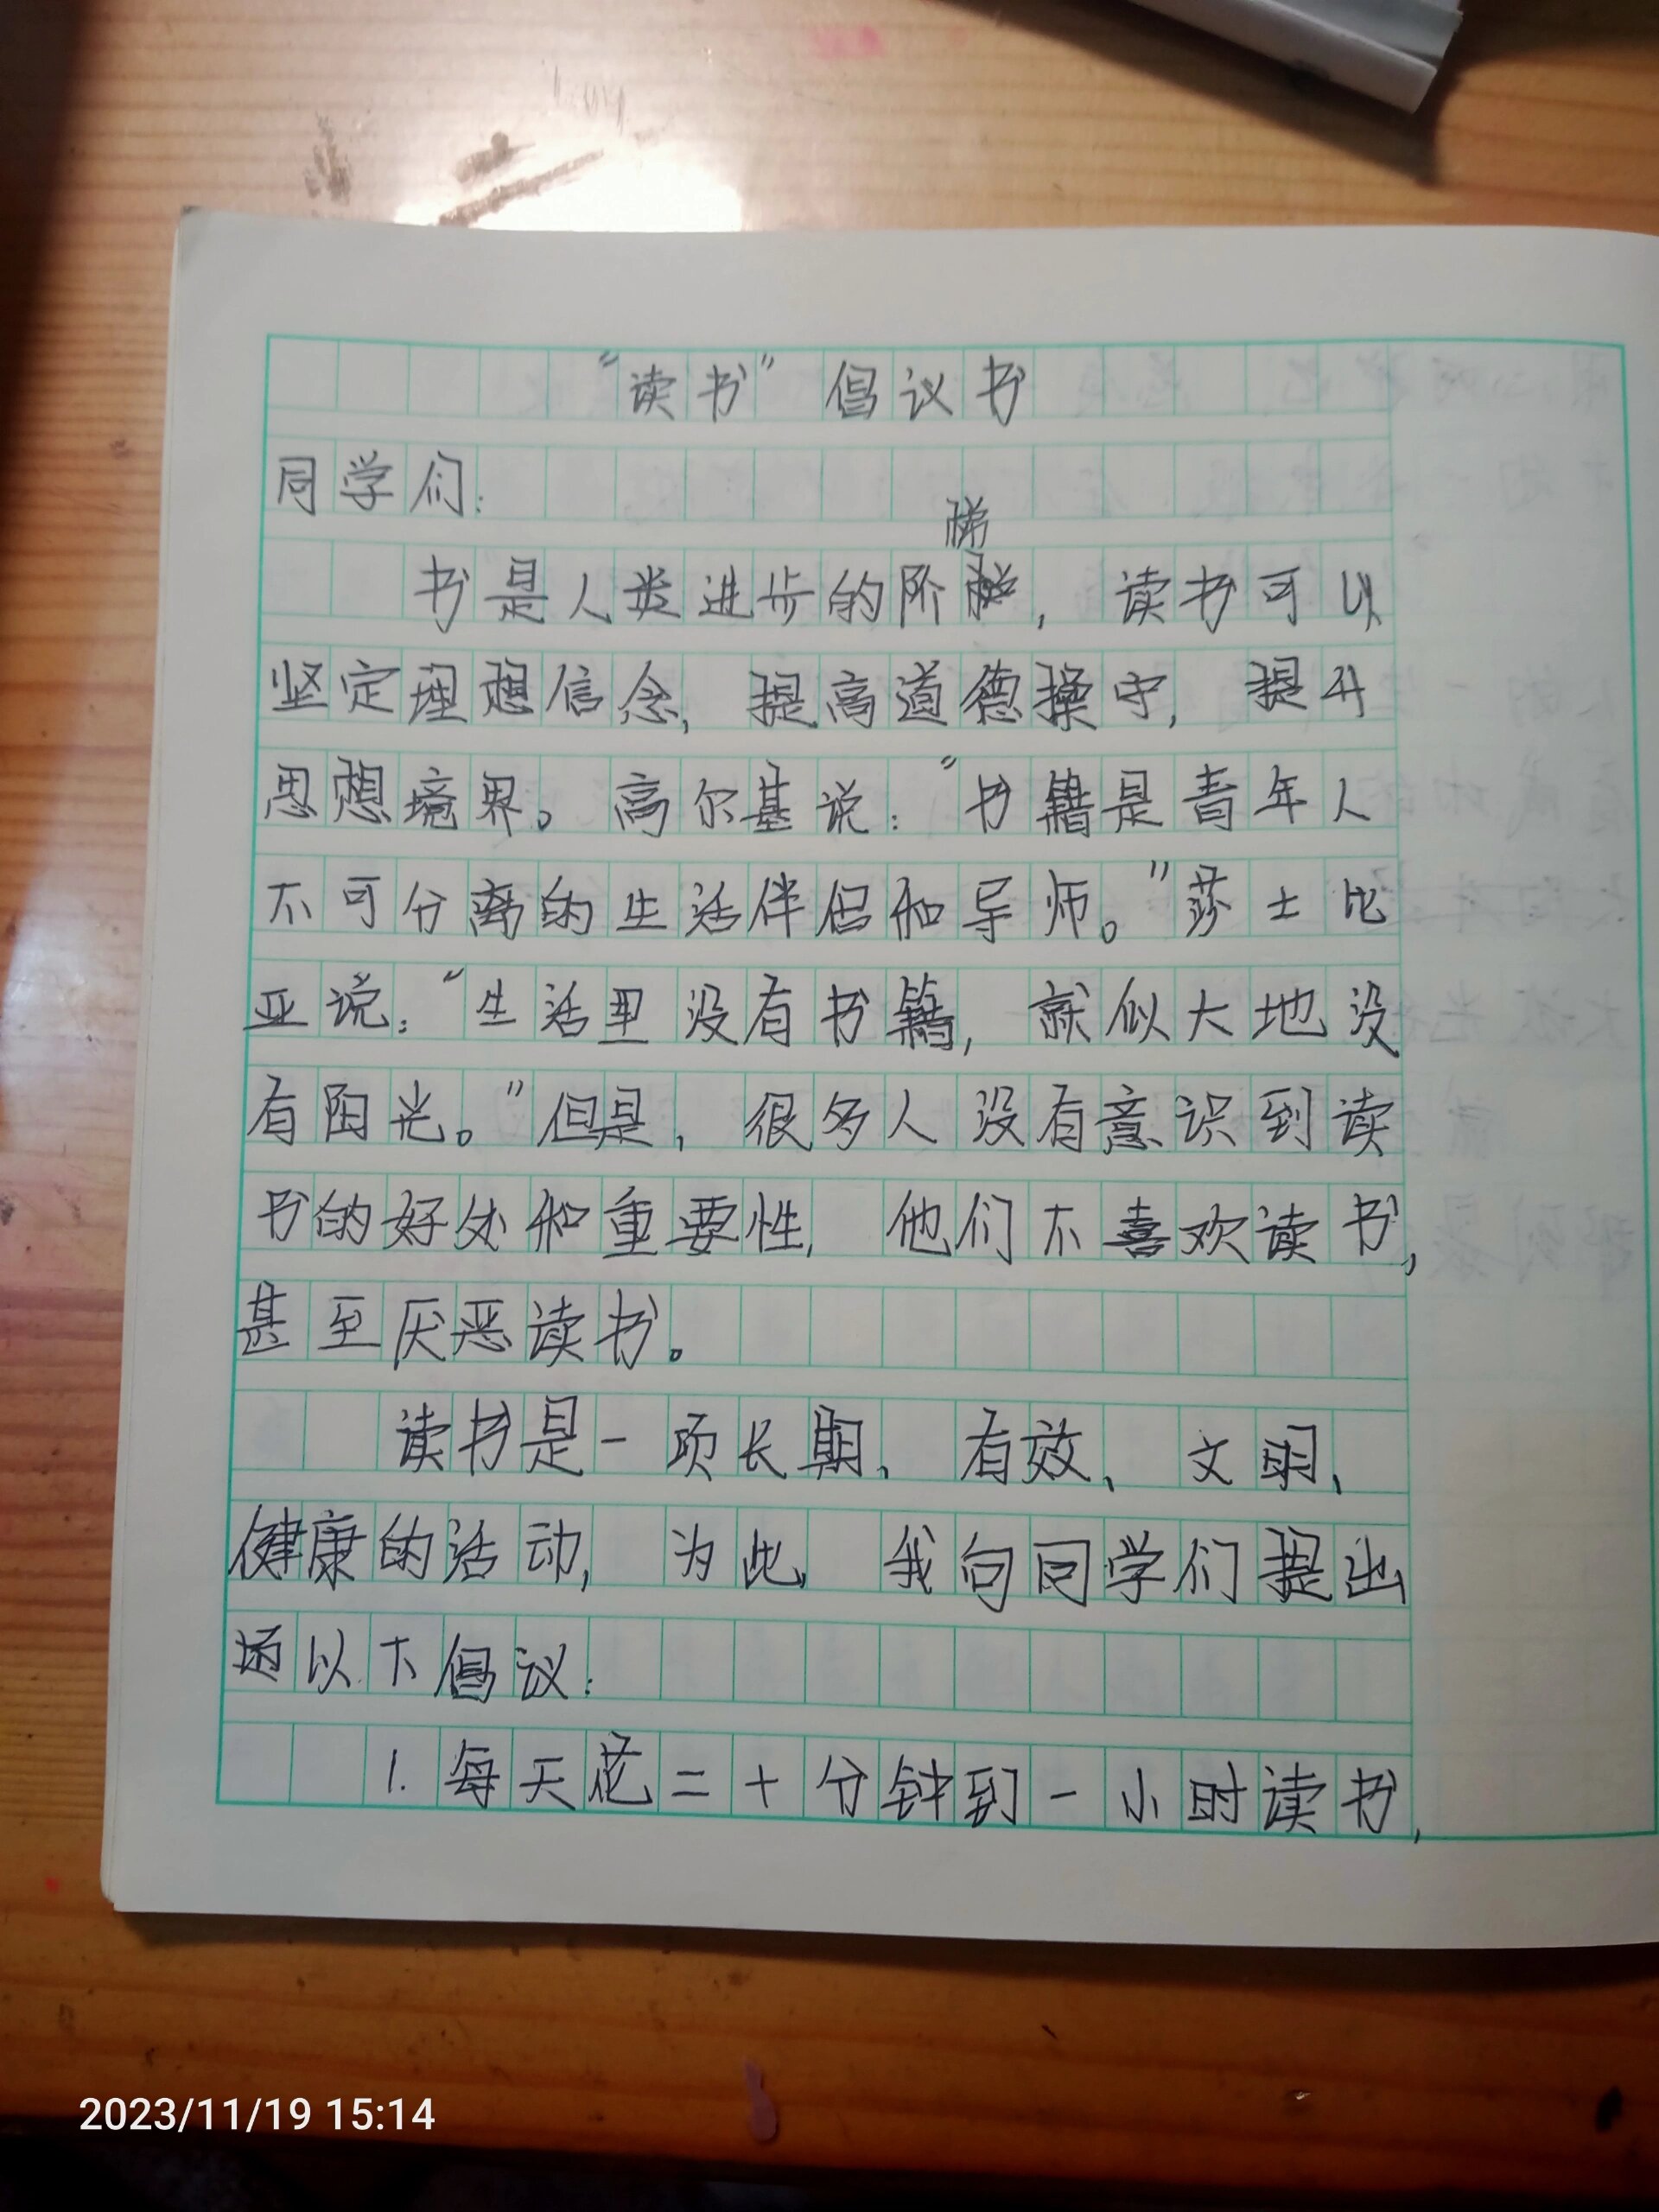 “读书”倡议书
同学们：
书是人类进步的阶梯，读书可以
坚定理想信念，提高道德操守，提升
思想境界。高尔基说：“书籍是青年人
不可分离的生活伴侣和导师。”莎士比
亚说：“生活里没有书籍，就似大地没
有阳光。”但是，很多人没有意识到读
书的好处和重要性，他们不喜欢读书，
甚至厌恶读书。
读书是一项长期、有效、文明、
健康的活动，为此，我向同学们提出
以下倡议：
1.每天花二十分钟到一小时读书，
2023/11/19 15:14